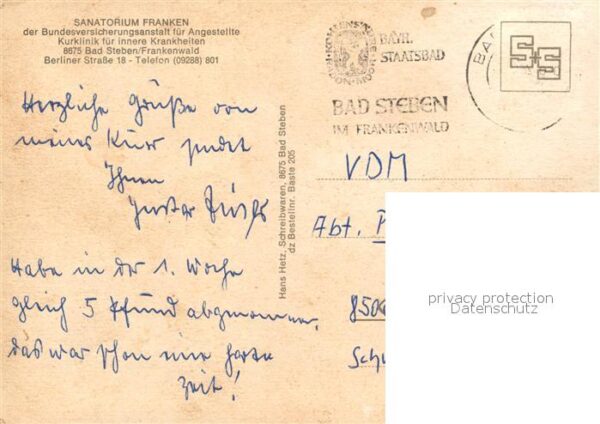 SANATORIUM FRANKEN
der Bundesversicherungsanstalt für Angestellte
Kurklinik für innere Krankheiten
8675 Bad Steben/Frankenwald
Berliner Straße 18 - Telefon (09288) 801
Herzliche Grüße von
meiner Kur sendet
Ihnen
Gustav
Habe in der 1. Woche
gleich 5 Pfund abgenommen,
das war schon eine harte
Zeit!
Hans Hetz, Schreibwaren, 8675 Bad Steben
dz Bestellnr. Baste 205
BAYR.
STAATSBAD
BAD STEBEN
IM FRANKENWALD
BA
S+S
VDM
Abt.
850
Sch
privacy protection
Datenschutz